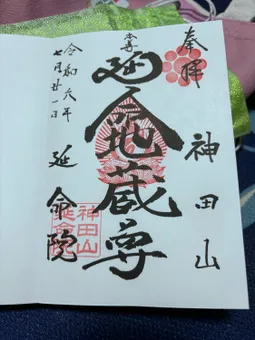 奉拝
神田山
本尊
延命地蔵尊
延命院
令和六年
七月廿一日
神田山
延命院